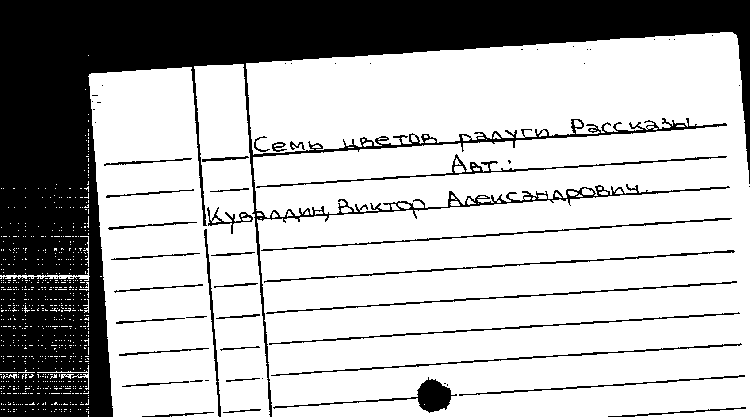 Семь цветов радуги. Рассказы.
Авт.:
Кувалдин, Виктор Александрович.